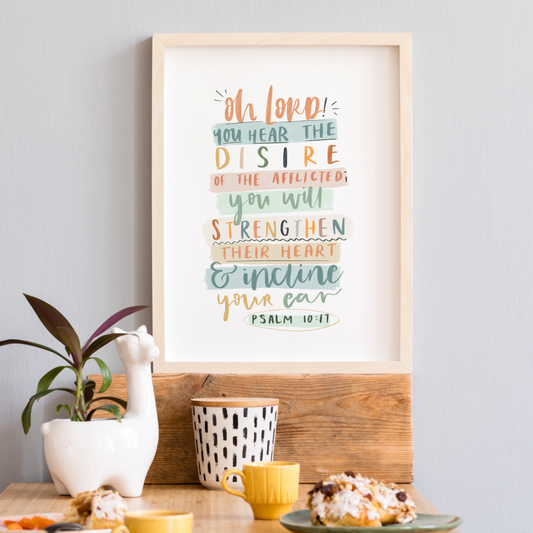 Oh Lord!
YOU HEAR THE
DISIRE
OF THE AFFLICTED;
you will
STRENGTHEN
THEIR HEART
& incline
your ear
PSALM 10:17